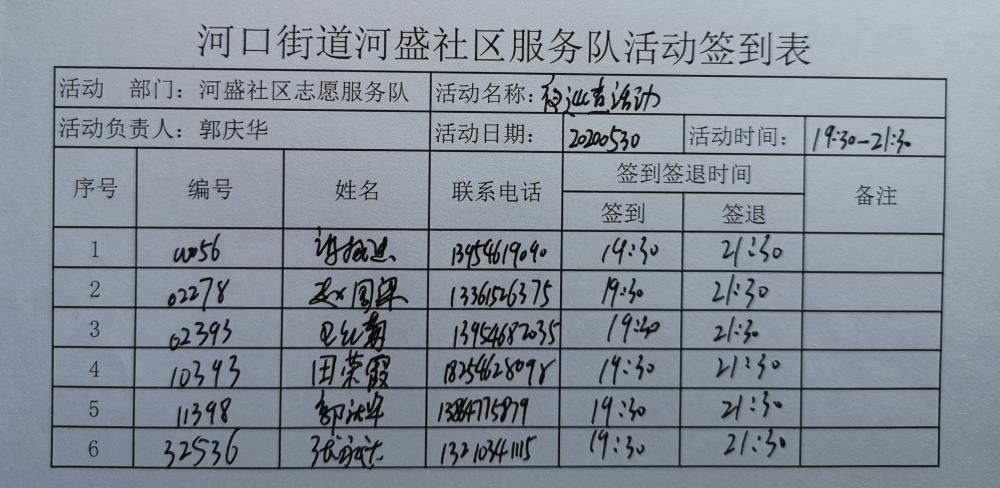 河口街道河盛社区服务队活动签到表
活动 部门：河盛社区志愿服务队 活动名称：夜巡查活动
活动负责人：郭庆华 活动日期： 20200530 活动时间： 19:30-21:30
序号 编号 姓名 联系电话 签到签退时间 备注
签到 签退
1 0056 13954619090 19:30 21:30
2 02278 13361526375 19:30 21:30
3 02393 13954682035 19:30 21:30
4 10393 田荣霞 18254628098 19:30 21:30
5 11398 13864775879 19:30 21:30
6 32536 13210341115 19:30 21:30